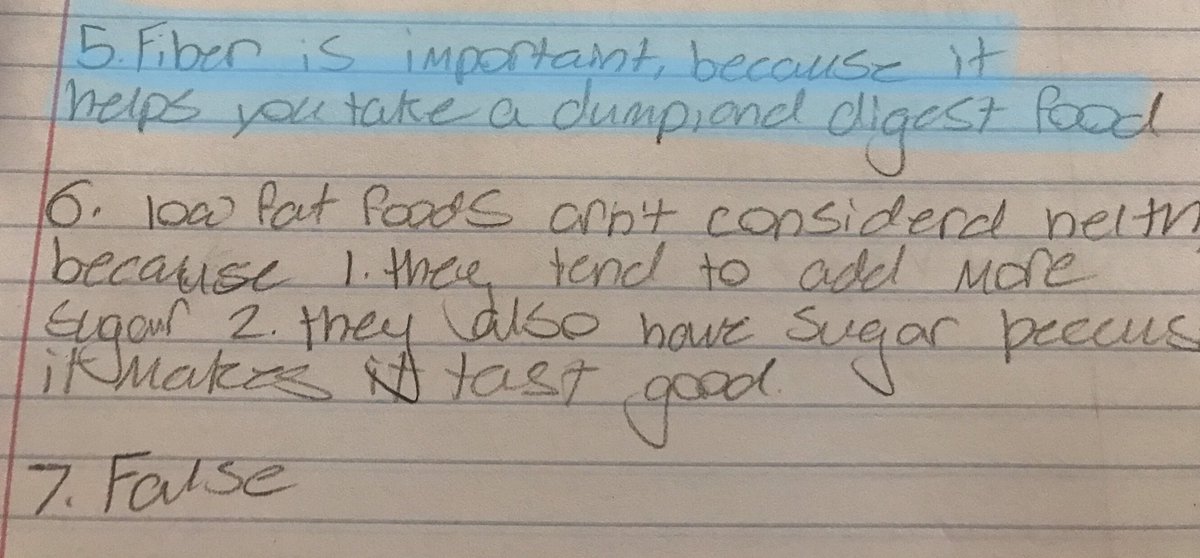 5. Fiber is importaint, because it
helps you take a dump, and digest food
6. low fat foods arn't considerd helth
because 1. they tend to add more
sugar 2. they also have sugar beecus
it makes it tast good.
7. False